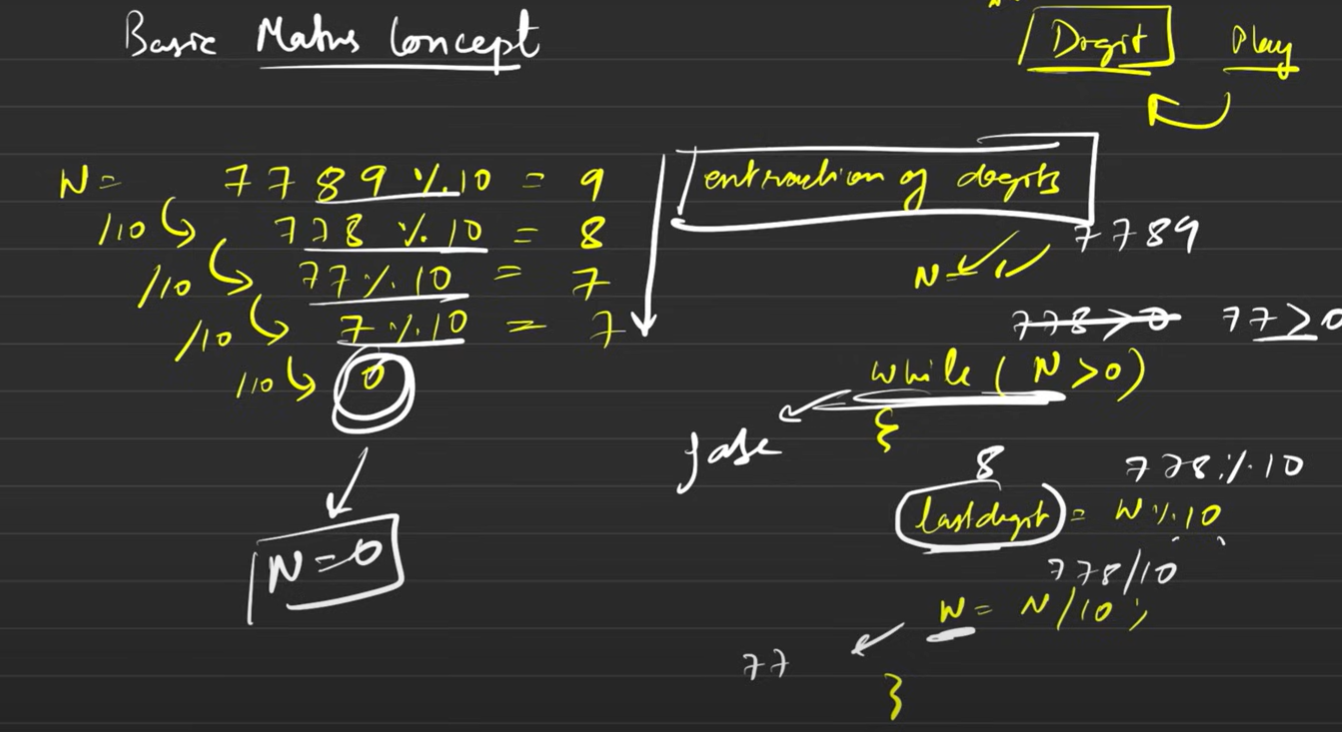 Basic Maths Concept
Digit Play
N = 7789 % 10 = 9
/10 778 % 10 = 8
/10 77 % 10 = 7
/10 7 % 10 = 7
/10 0
N = 0
extraction of digits
7789
N =
778 > 0 77 > 0
while ( N > 0 )
{
false
8 778 % 10
lastdigit = N % 10
778/10
N = N/10;
77
}